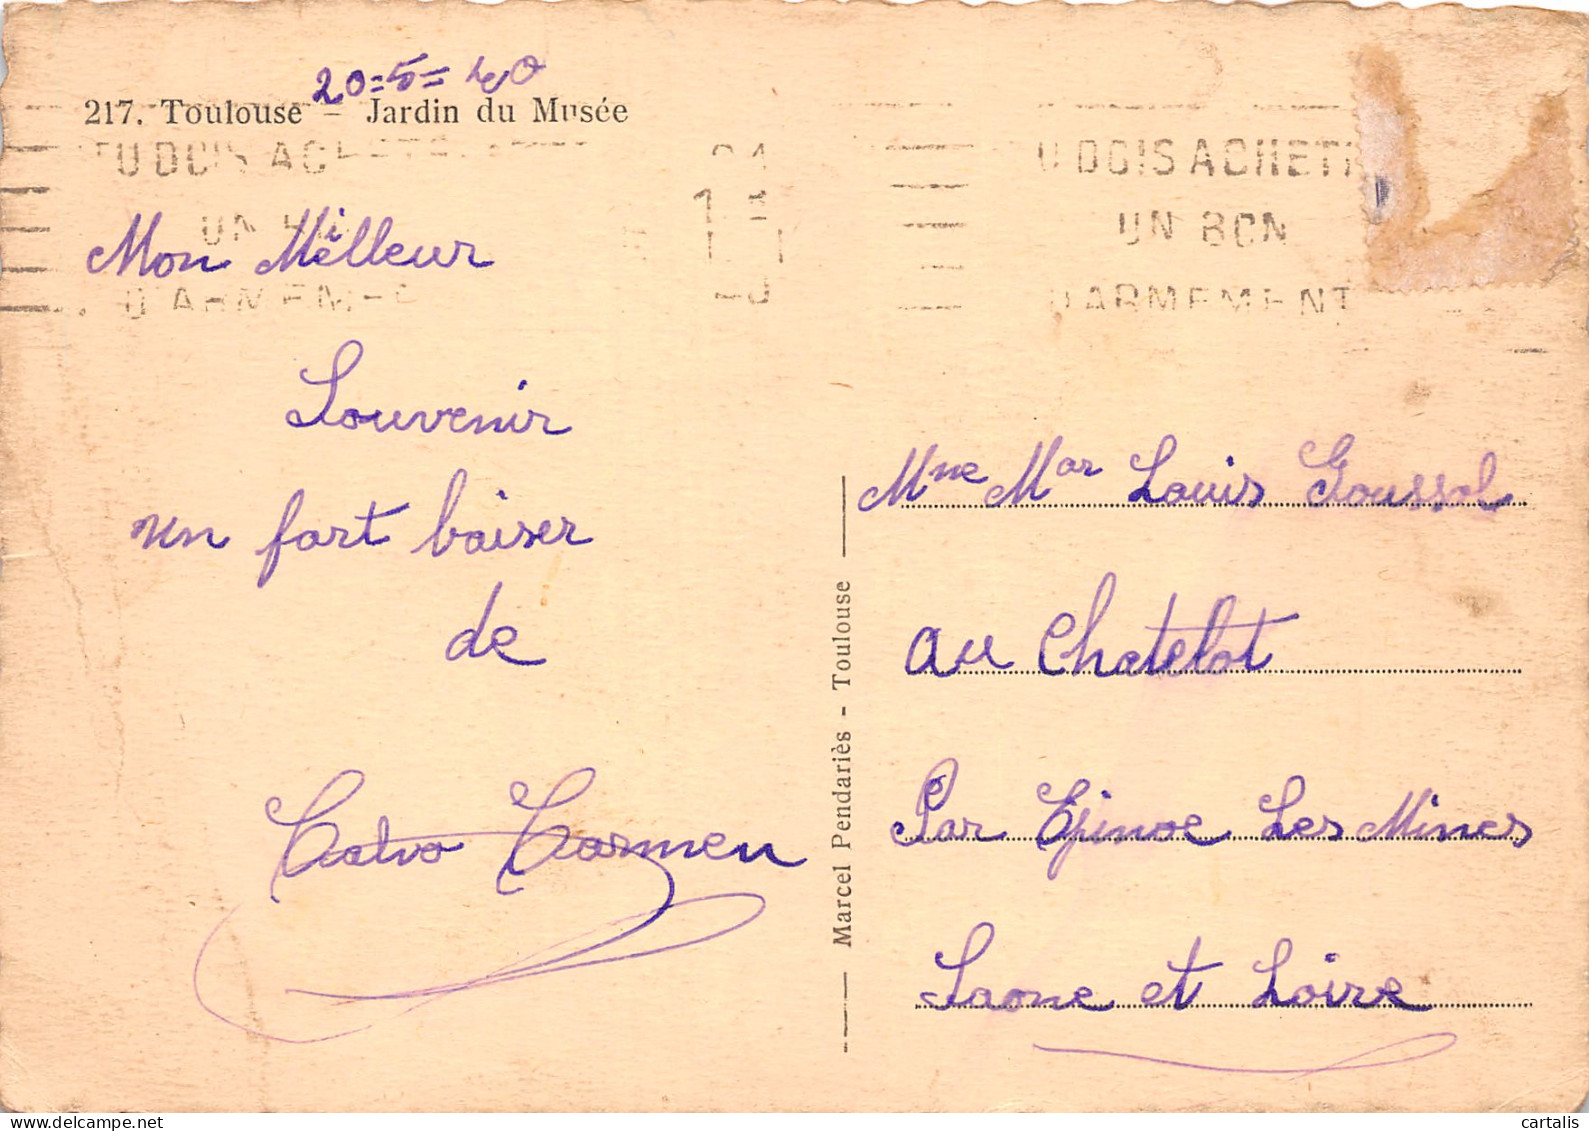 20=5=40
217. Toulouse – Jardin du Musée
U DOIS ACHETE
UN
D'ARMEME
U DOIS ACHETE
UN BON
D'ARMEMENT
Mon Meilleur
Souvenir
un fort baiser
de
Calvo Carmen
Marcel Pendariès - Toulouse
Mme Mar Louis Goussol
au Chatelot
Par Epinoc Les Mines
Saone et Loire
cartalis
www.delcampe.net